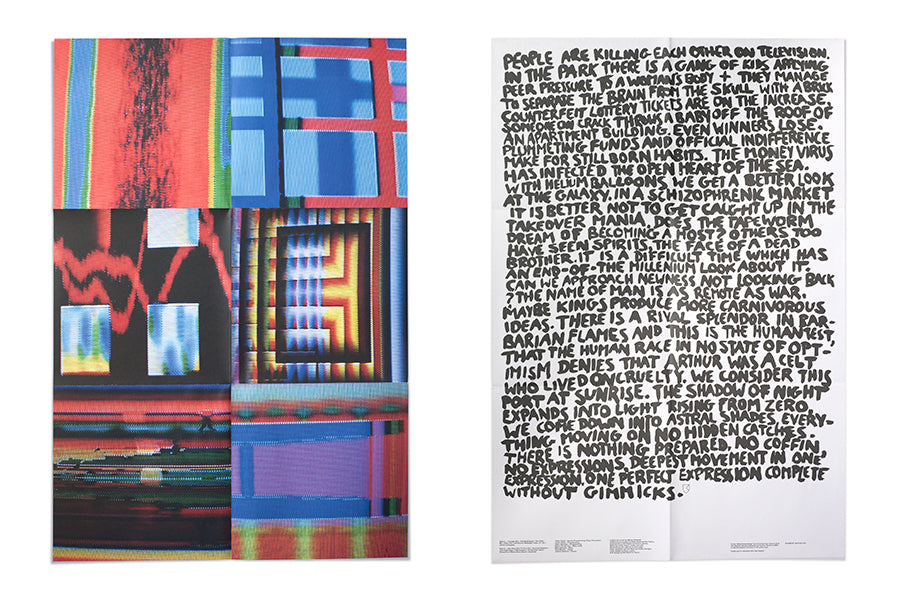 PEOPLE ARE KILLING EACH OTHER ON TELEVISION.
IN THE PARK THERE IS A GANG OF KIDS APPLYING
PEER PRESSURE TO A WOMAN'S BODY + THEY MANAGE
TO SEPARATE THE BRAIN FROM THE SKULL WITH A BRICK
COUNTERFEIT LOTTERY TICKETS ARE ON THE INCREASE,
SOMEONE ON CRACK THROWS A BABY OFF THE ROOF OF
AN APARTMENT BUILDING. EVEN WINNERS LOSE
PLUMMETING FUNDS AND OFFICIAL INDIFFERENCE
MAKE FOR STILLBORN HABITS. THE MONEY VIRUS
HAS INFECTED THE OPEN HEART OF THE SEA.
WITH HELIUM BALLOONS WE GET A BETTER LOOK
AT THE GALAXY. IN A SCHIZOPHRENIC MARKET
IT IS BETTER NOT TO GET CAUGHT UP IN THE
TAKEOVER MANIA. DOES THE TAPEWORM
DREAM OF BECOMING A HOST? OTHERS TOO
HAVE SEEN SPIRITS. THE FACE OF A DEAD
BROTHER. IT IS A DIFFICULT TIME WHICH HAS
AN END-OF-THE MILLENIUM LOOK ABOUT IT.
CAN WE APPROACH NEWNESS NOT LOOKING BACK
? THE NAME OF MAN IS AS REMOTE AS WAR.
MAYBE KINGS PRODUCE MORE CARNIVOROUS
IDEAS. THERE IS A RIVAL SPLENDOR IN BAR-
BARIAN FLAMES AND THIS IS THE HUMAN TEST,
THAT THE HUMAN RACE IN NO STATE OF OPT-
IMISM DENIES THAT ARTHUR WAS A CELT
WHO LIVED ON CRUELTY. WE CONSIDER THIS
PORT AT SUNRISE. THE SHADOW OF NIGHT
EXPANDS INTO LIGHT RISING FROM ZERO.
WE COME DOWN INTO ASTRAL SHADES EVERY-
THING MOVING ON NO HIDDEN CATCHES.
THERE IS NOTHING PREPARED. NO COFFIN
NO EXPRESSIONS. DEEPEST MOVEMENT IN ONE
EXPRESSION. ONE PERFECT EXPRESSION COMPLETE
WITHOUT GIMMICKS.